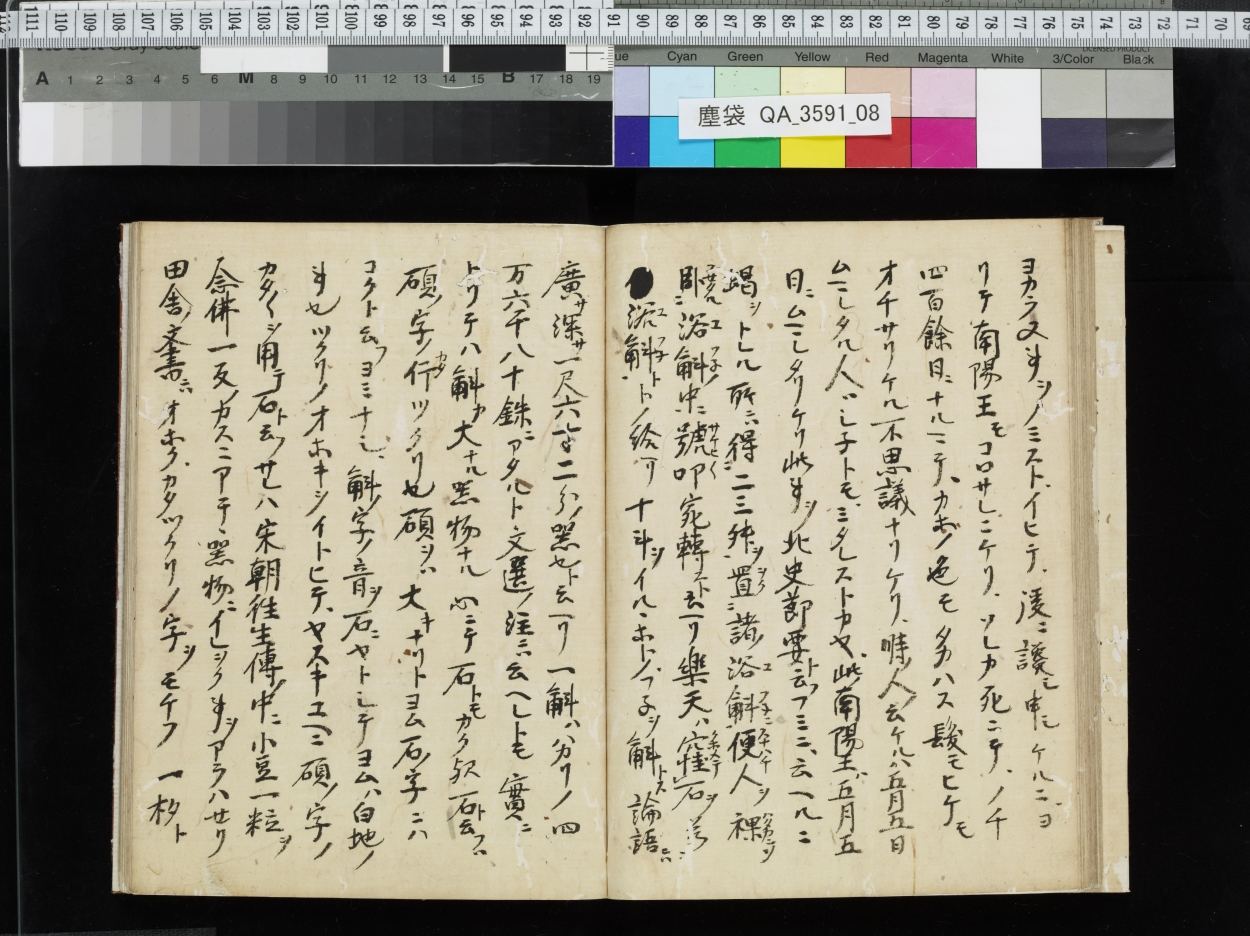 塵袋 QA_3591_08
Cyan Green Yellow Red Magenta White 3/Color Black
A 1 2 3 4 5 6 M 8 9 10 11 12 13 14 15 B 17 18 19
リテ南陽王モコロサレニケリ、ソレカ死ニテ、ノチ
四百餘日ニナルニテ、カホノ色モタカハス髪モヒケモ
オチサリケル不思議ナリケリ、時人云ケルハ五月五日
ムニレタル人ハレ子トモミタレストカヤ、此南陽王五月五
日ニムニレタリケリ此事ヲ北史節要云フミニ云ヘルニ
蝎ヲトレル所ニ得二三升置諸浴斛便人ヲ裸
臥浴斛中號叫宛轉云ヘリ樂天ハ窪石ヲ
浴斛ト給ヘリ十斗ヲイルホトノフ子ヲ斛トス論語
廣サ深サ一尺六寸二分ノ器也ト云ヘリ一斛ハ八分リノ四
万六千八十銖ニアタルト文選ノ注ニ云ヘレトモ實ニ
トリテハ斛カ大ナル器物ナル心ニテ石トモカク歟石ト云フハ
碩ノ字ノ作ツクリ也碩ヲハ大キナリトヨム石ノ字ニハ
コクト云フヨミナシ、斛ノ字ノ音ヲ石ニヤトシテヨム、白地ノ
事也ツクリノオホキヲイトヒテ、ヤスキユヘニ碩ノ字ノ
カタ〱ヲ用テ石ト云フサレハ宋朝往生傳ノ中ニ小豆一粒ヲ
念佛一反ノカスニアテテ器物ニイレヲク事ヲアラハセリ
田舎ノ文書ニオホクカタツクリノ字ヲモチフ